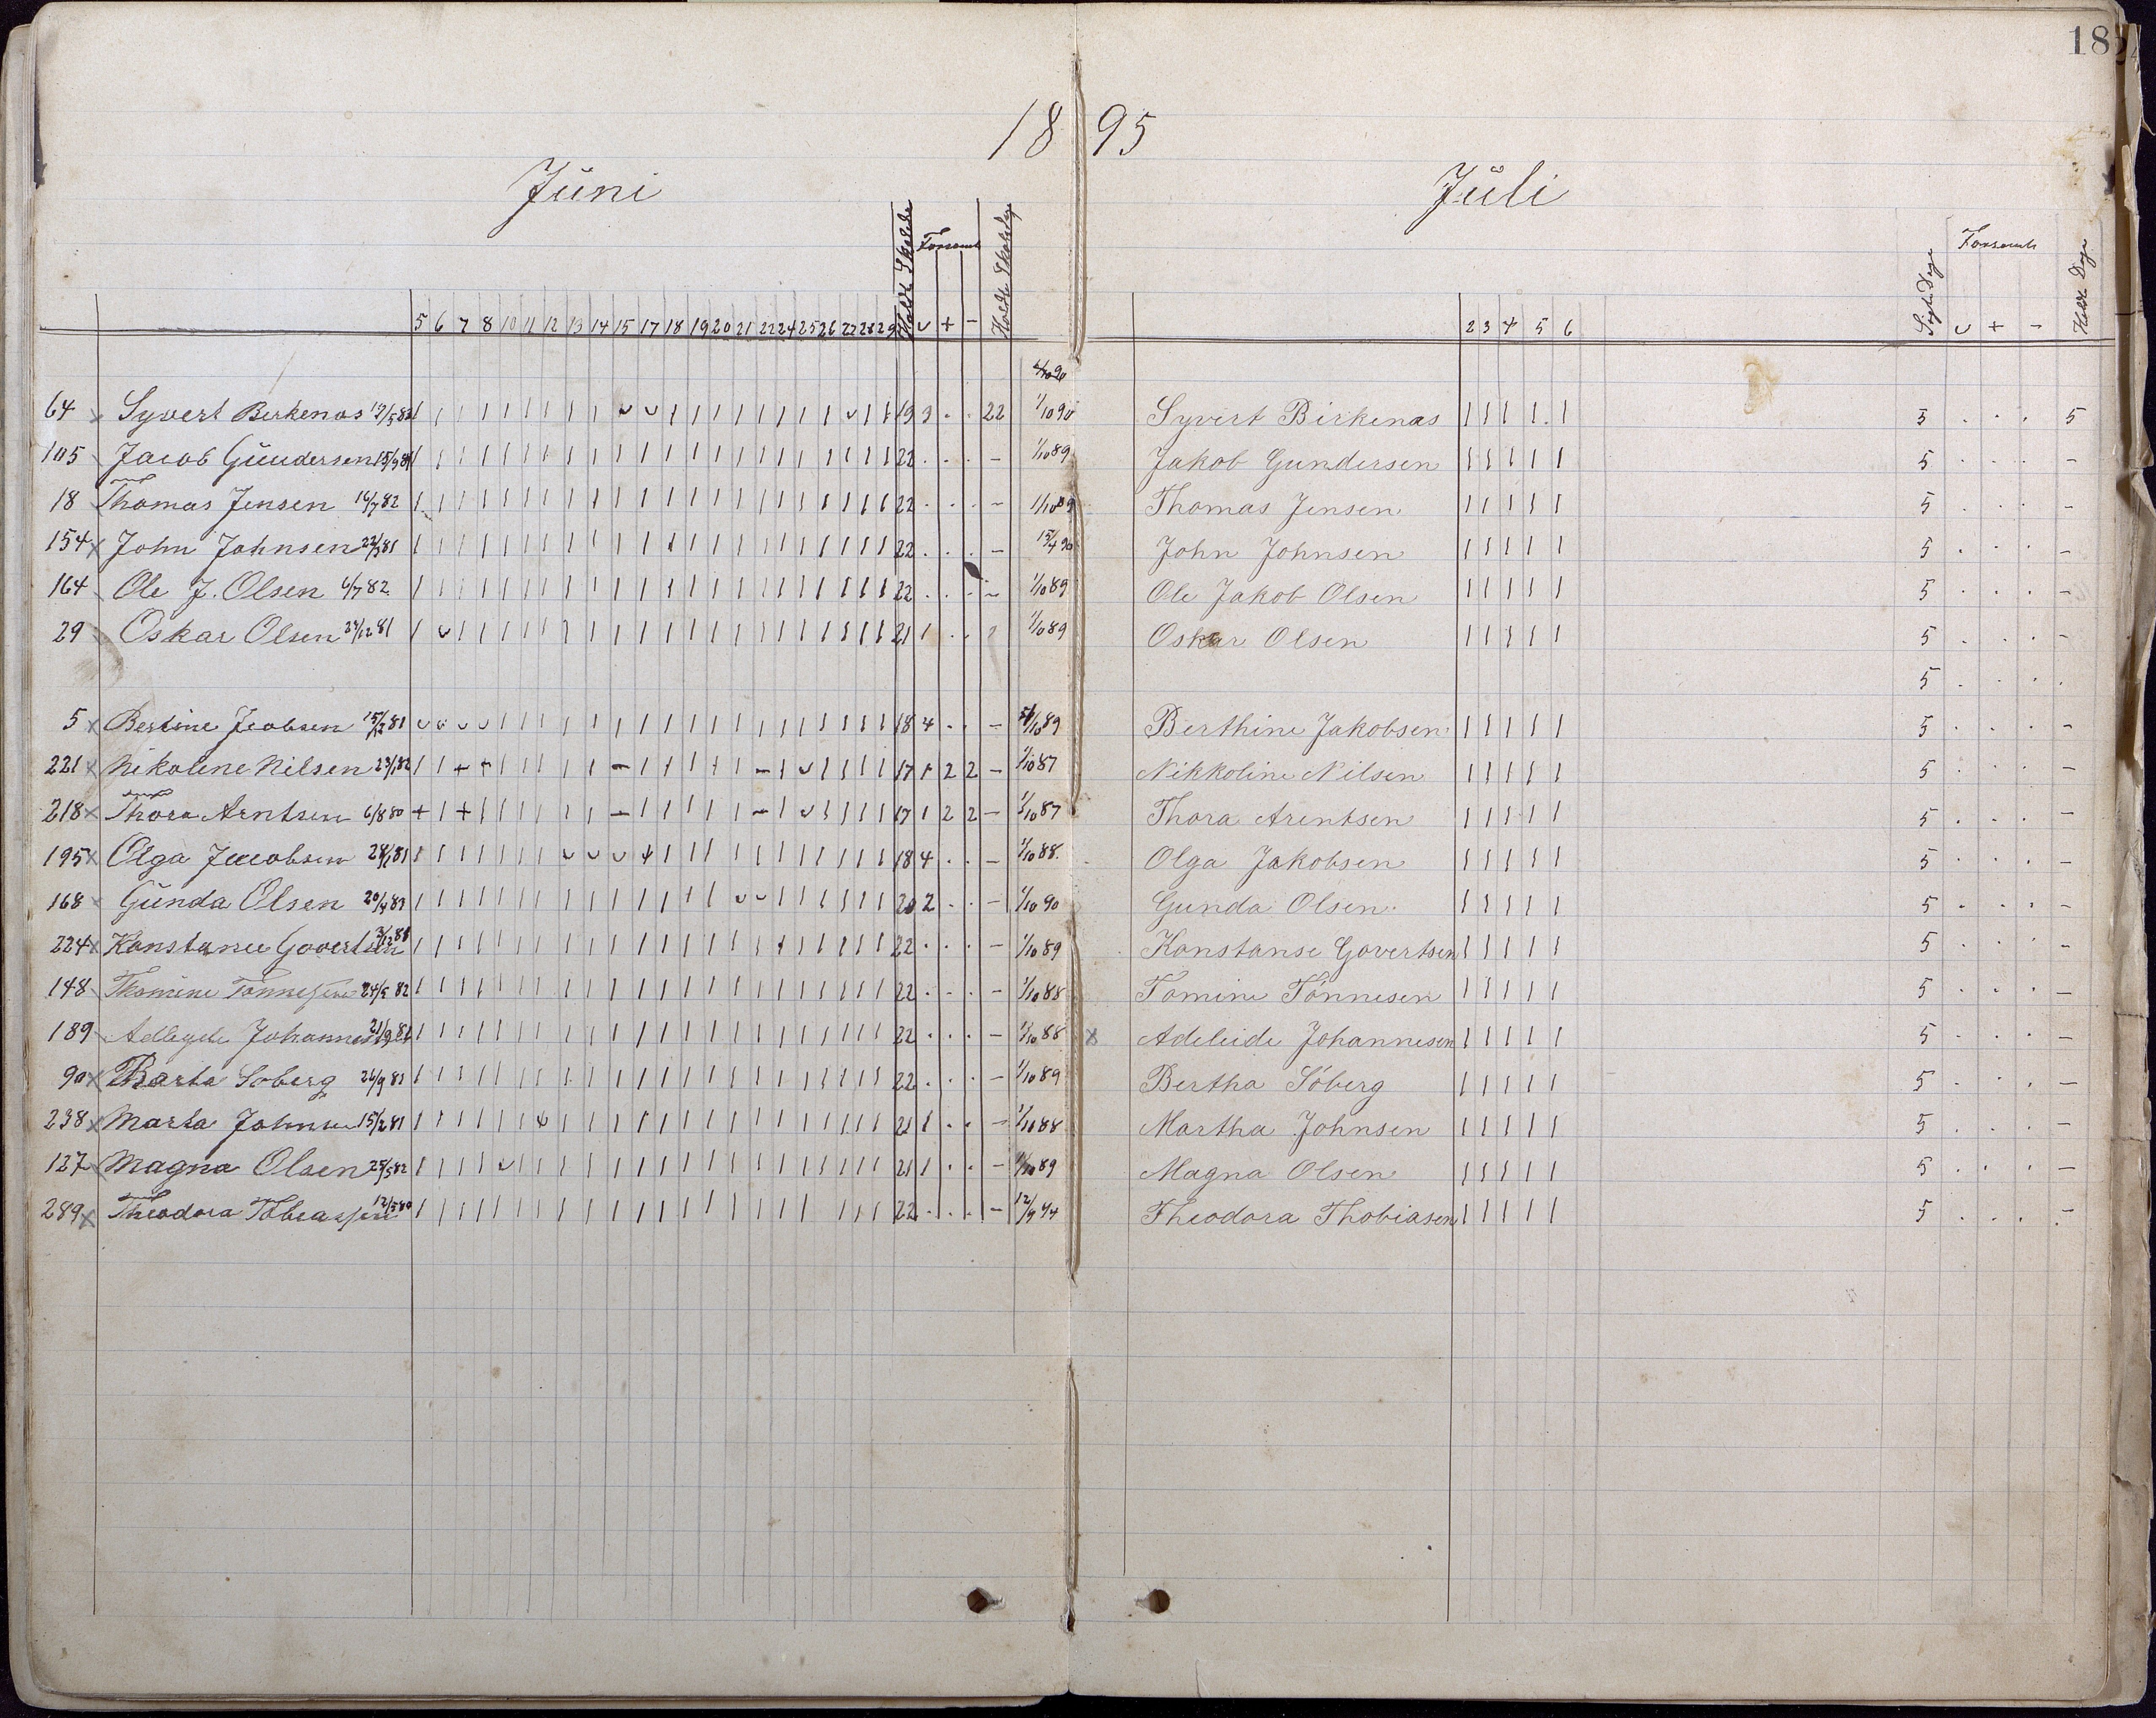 18
18 95
Juni
Juli
Forsømt
Forsømt
Holdte Skoledage
Holdte Dage
5 6 7 8 10 11 12 13 14 15 17 18 19 20 21 22 24 25 26 27 28 29 ᴗ + -
2 3 4 5 6 ᴗ + -
64 x Syvert Berkenas 19/5 82 | | | | | | | | | ᴗ ᴗ | | | | | | | | ᴗ | | 19 3 . . 22 1/10 90 Syvert Birkenas | | | | | 5 . . . 5
105 Jacob Gundersen 15/9 81 | | | | | | | | | | | | | | | | | | | | | | 22 . . . - 1/10 89 Jakob Gundersen | | | | | 5 . . . -
18 Thomas Jensen 16/7 82 | | | | | | | | | | | | | | | | | | | | | | 22 . . . - 1/10 89 Thomas Jensen | | | | | 5 . . . -
154 x John Johnsen 81 | | | | | | | | | | | | | | | | | | | | | | 22 . . . - 15/4 90 John Johnsen | | | | | 5 . . . -
164 Ole J. Olsen 6/7 82 | | | | | | | | | | | | | | | | | | | | | | 22 . . . - 1/10 89 Ole Jakob Olsen | | | | | 5 . . . -
29 Oskar Olsen 29/12 81 | ᴗ | | | | | | | | | | | | | | | | | | | | 21 1 . . 1/10 89 Oskar Olsen | | | | | 5 . . . -
5 . . . .
5 x Bertine Jacobsen 15/12 81 ᴗ ᴗ ᴗ ᴗ | | | | | | | | | | | | | | | | | | 18 4 . . - 1/10 89 Berthine Jakobsen | | | | | 5 . . . -
221 x Nikoline Nilsen 23/1 82 | | + + | | | | | - | | | | | - | ᴗ | | | | 17 1 2 2 - 1/10 87 Nikkoline Nilsen | | | | | 5 . . . -
218 x Thora Arntsen 6/8 80 + | + | | | | | | - | | | | | - | ᴗ | | | | 17 1 2 2 - 1/10 87 Thora Arentsen | | | | | 5 . . . -
195 x Olga Jacobsen 28/1 81 | | | | | | | ᴗ ᴗ ᴗ ᴗ | | | | | | | | | | | 18 4 . . - 1/10 88. Olga Jakobsen | | | | | 5 . . . -
168 x Gunda Olsen 20/4 83 | | | | | | | | | | | | | | ᴗ ᴗ | | | | | | 20 2 . . - 1/10 90 Gunda Olsen | | | | | 5 . . . -
224 x Konstance Govertsen | | | | | | | | | | | | | | | | | | | | | | 22 . . . - 1/10 89 Konstanse Govertsen | | | | | 5 . . . -
148 Thomine Tønnesen 24/5 82 | | | | | | | | | | | | | | | | | | | | | | 22 . . . - 1/10 88 Tomine Tønnesen | | | | | 5 . . . -
189 Johannes 21/9 | | | | | | | | | | | | | | | | | | | | | | 22 . . . - 1/10 88 x Adeleide Johannesen | | | | | 5 . . . -
90 x Barta Søberg 26/9 83 | | | | | | | | | | | | | | | | | | | | | | 22 . . . - 1/10 89 Bertha Søberg | | | | | 5 . . . -
238 x Marta Johnsen 15/2 81 | | | | | | ᴗ | | | | | | | | | | | | | | | 21 1 . . - 1/10 88 Martha Johnsen | | | | | 5 . . . -
127 Magna Olsen 25/5 82 | | | | ᴗ | | | | | | | | | | | | | | | | | 21 1 . . - 1/10 89 Magna Olsen | | | | | 5 . . . -
289 x Theodora Tobiassen 12/5 80 | | | | | | | | | | | | | | | | | | | | | | 22 . . . - 12/9 94 Theodora Thobiasen | | | | | 5 . . . -